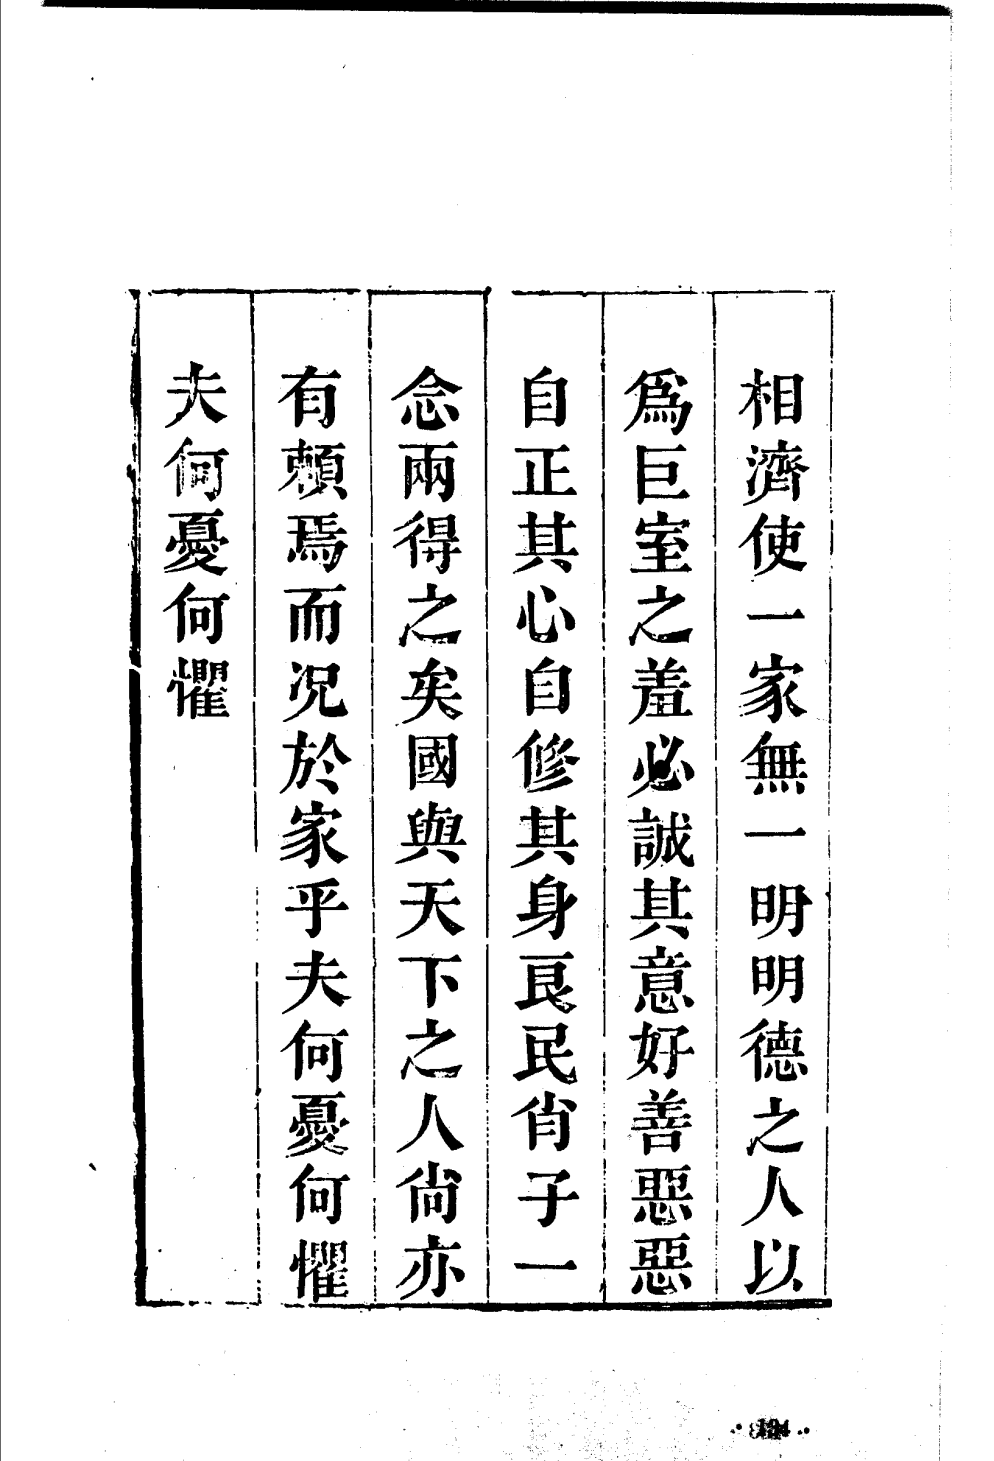 相濟使一家無一明明德之人以
爲巨室之羞必誠其意好善惡惡
自正其心自修其身良民肖子一
念兩得之矣國與天下之人尙亦
有賴焉而况於家乎夫何憂何懼
夫何憂何懼